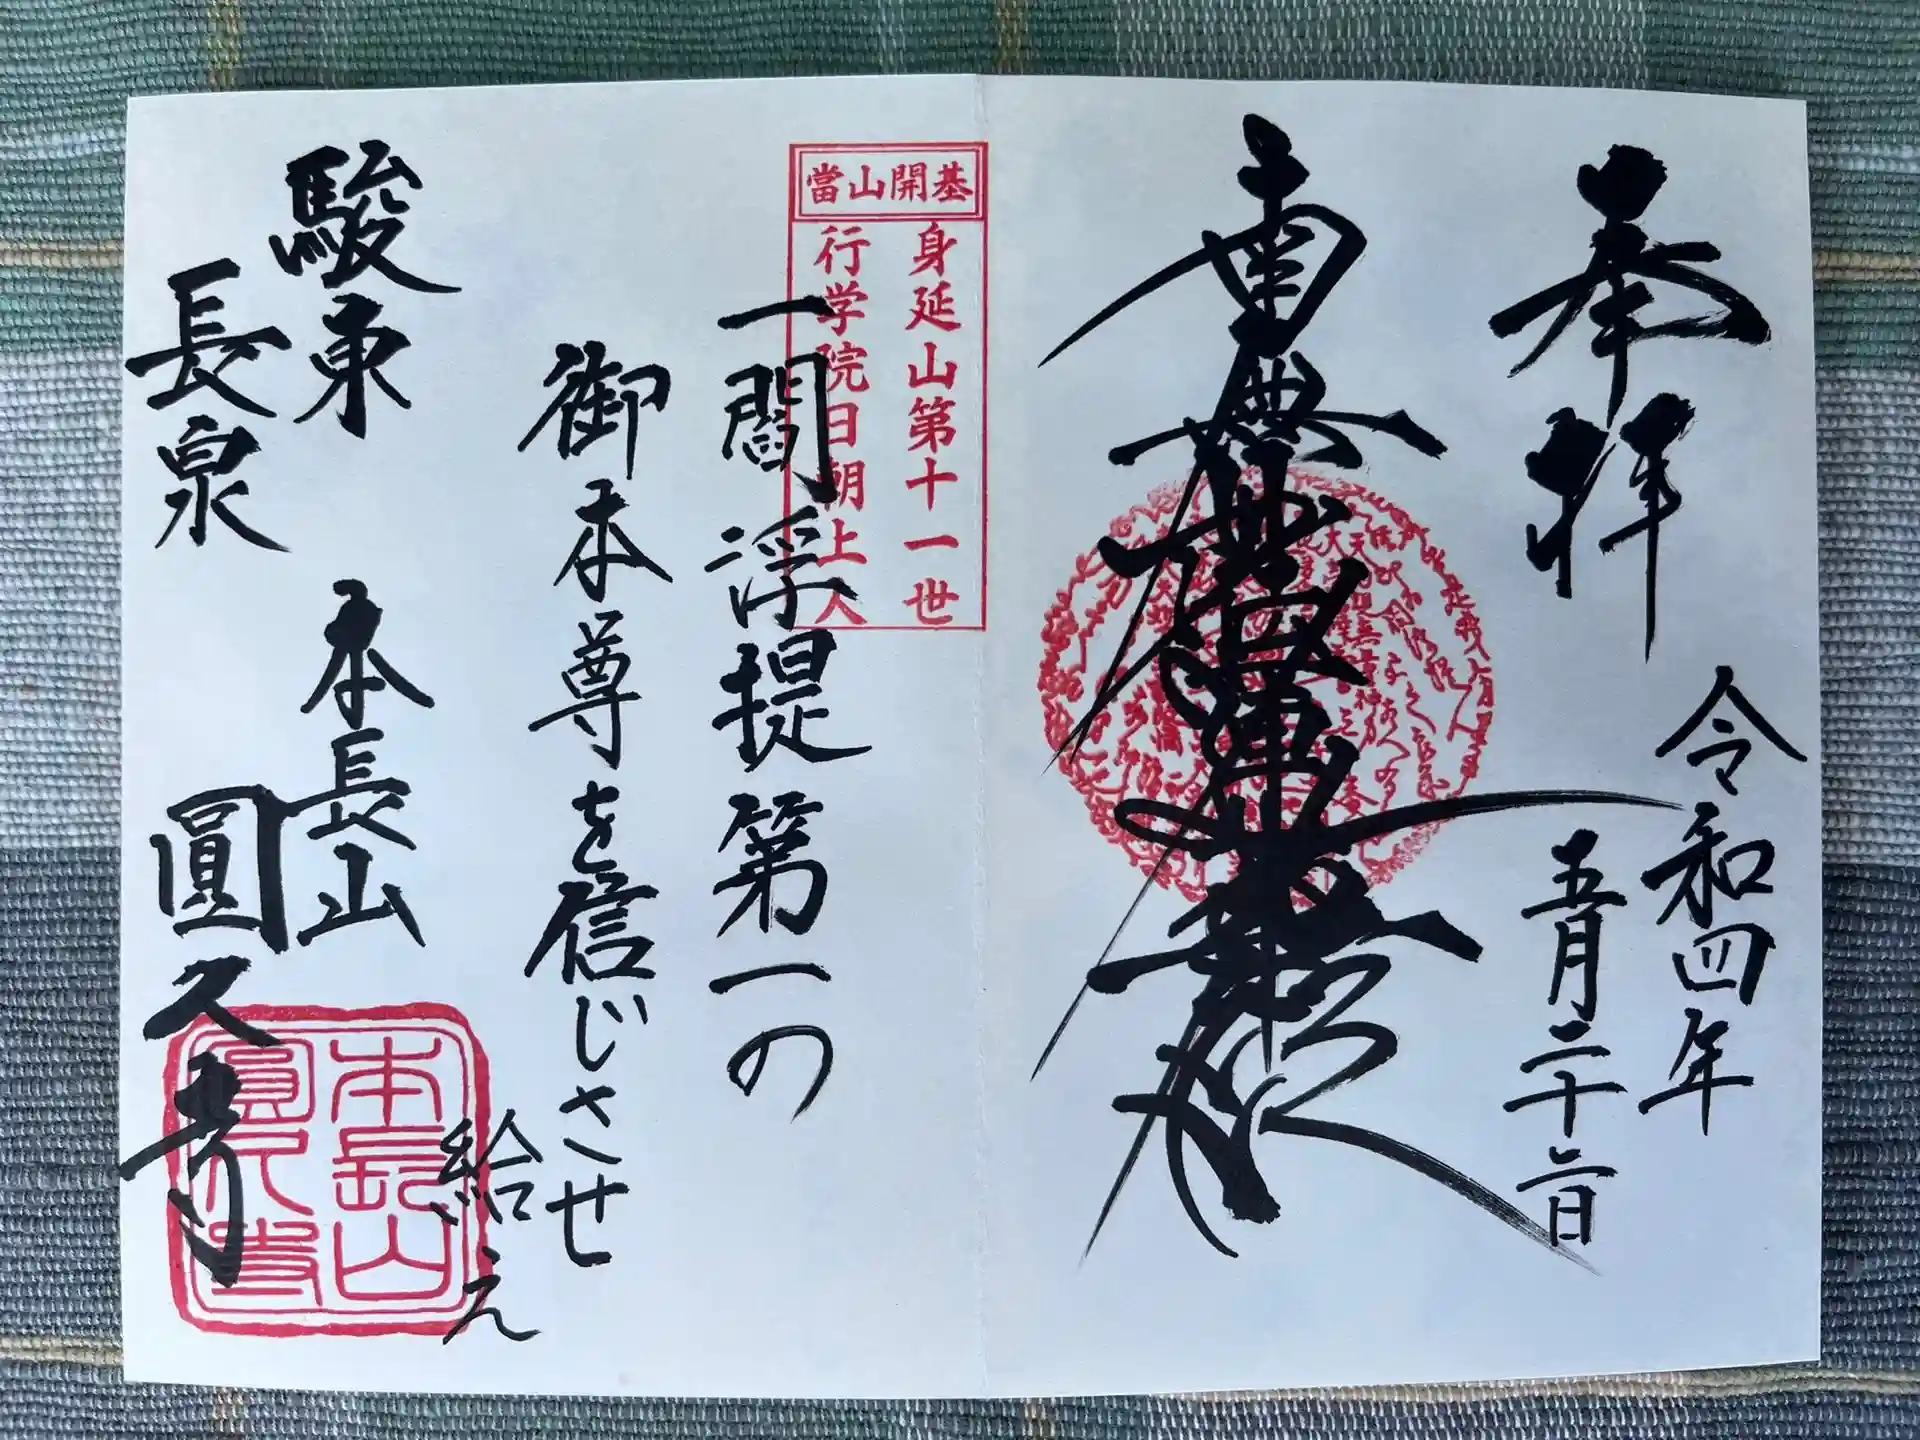 奉拝
令和四年
五月二十二日
南無妙法蓮華経
當山開基
身延山第十一世
行学院日朝上人
一閻浮提第一の
御本尊を信じさせ
給え
駿東
長泉
本長山
圓久寺
本長山
圓久寺